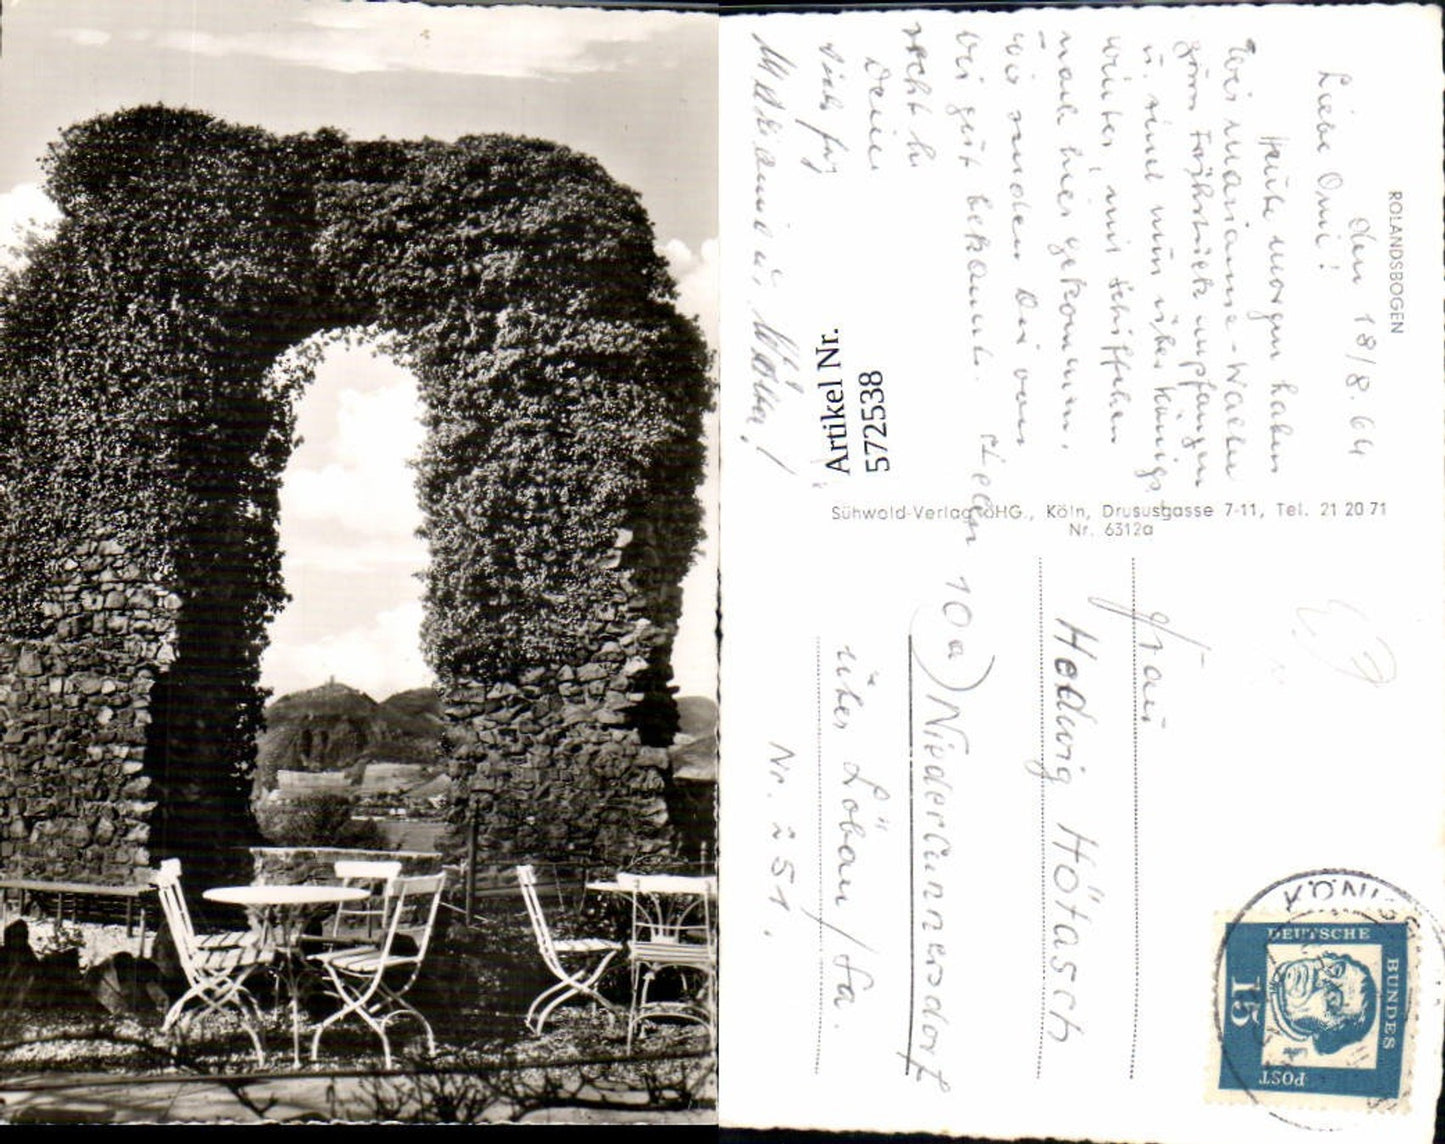 ROLANDSBOGEN
den 18/8.64
Liebe Omi!
Heute morgen haben
wir Marianne-Walter
zum Frühstück empfangen
u. sind nun über Königs-
winter, mit Schiffchen
nach hier gekommen.
Wir senden Dir von
bei gut bekannt.
recht h
Deine
Marianne u. Walter!
Artikel Nr.
572538
Sühwold-Verlag OHG., Köln, Drususgasse 7-11, Tel. 21 20 71
Nr. 6312a
Frau
Hedwig Hötasch
10a) Niedercunnersdorf
über Löbau/Sa.
Nr. 251.
KÖNIGS
DEUTSCHE
BUNDES
POST
15